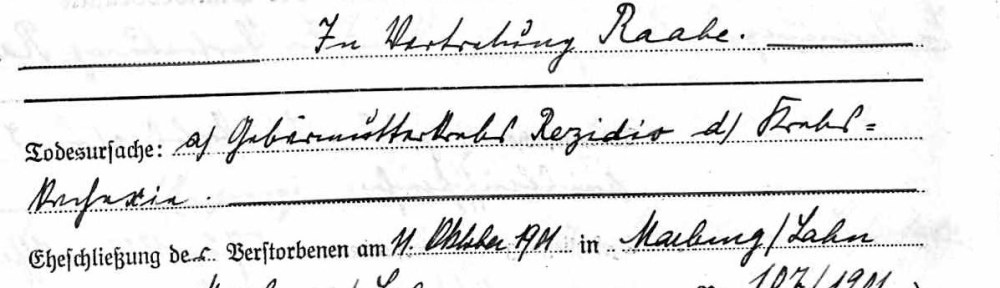 In Vertretung Raabe.
Todesursache: a) Gebärmutterkrebs Rezidiv d) Krebs=
kachexie.
Eheschließung der Verstorbenen am 11. Oktober 1901 in Marburg/Lahn
107/1901